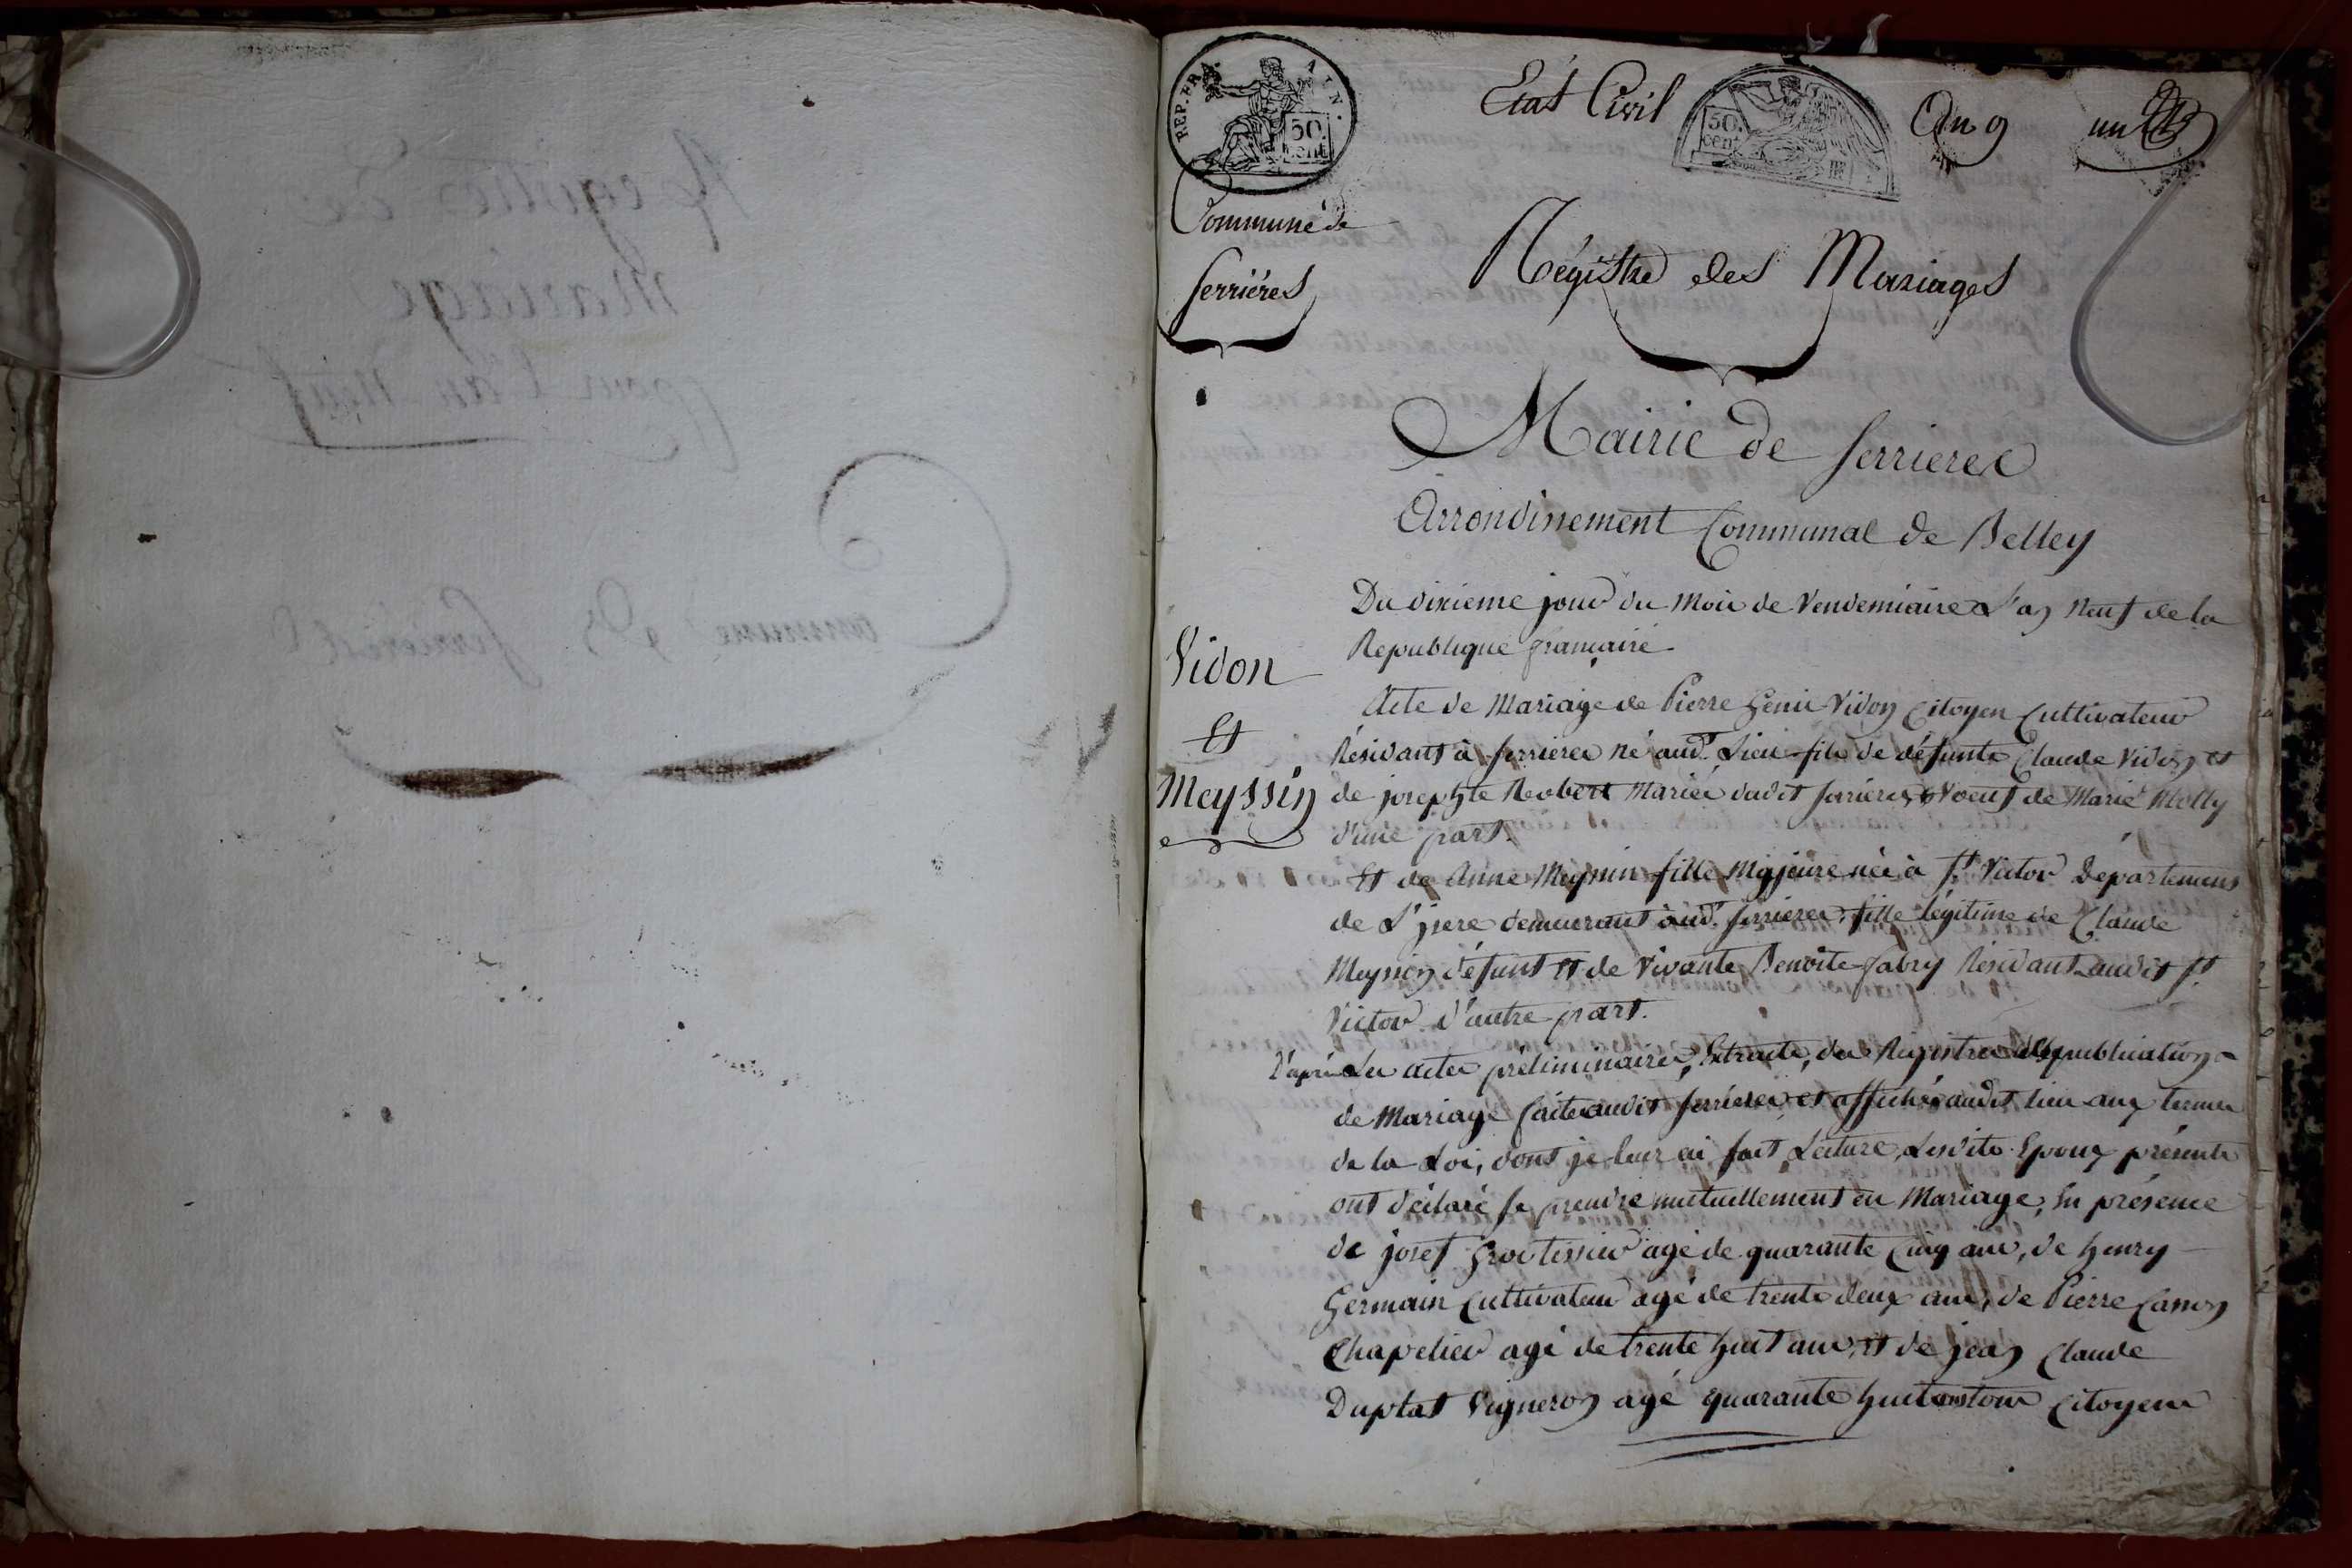 REP. FRA. ATN.
50.
cent
Etat Civil
50.
cen
An 9
un
Commune de
Serrières
Régistre des Mariages
Mairie de Serrieres
Arrondissement Communal de Belley
Du dixieme jour du Mois de Vendemiaire L'an Neuf de la
Republique française
Vidon
Et
Meyssin
Acte de Mariage de Pierre Vidon Citoyen Cultivateur
Résidant à Serrieres né aud.t Lieu fils de défunts Claude Vidon et
de josephte Robert Mariés dudit Serrieres, Voeuf de Marie Molly
d'une part.
Et de Anne Meyssin fille Majeure née à S.t Victor Département
de L'jsere demeurant aud.t Serrieres, fille légitime de Claude
Meyssin défunt et de Vivante Benoite fabry Résidant audit S.t
Victor d'autre part.
D'après Les actes préliminaires, Extraits, des Registres des publications
de Mariage faites audit Serrieres et affichés audit lieu aux termes
de la Loi, dont je leur ai fait Lecture, Lesdits Epoux présents
ont déclaré se prendre mutuellement en Mariage, En présence
de josef agé de quarante Cinq ans, de henry
Germain Cultivateur agé de trente deux ans, de Pierre Canon
Chapelier agé de trente huit ans, et de jean Claude
Duplat Vigneron agé quarante huit ans tous Citoyens
Registres de
Mariage
pour l'an Neuf
Commune de Serrieres